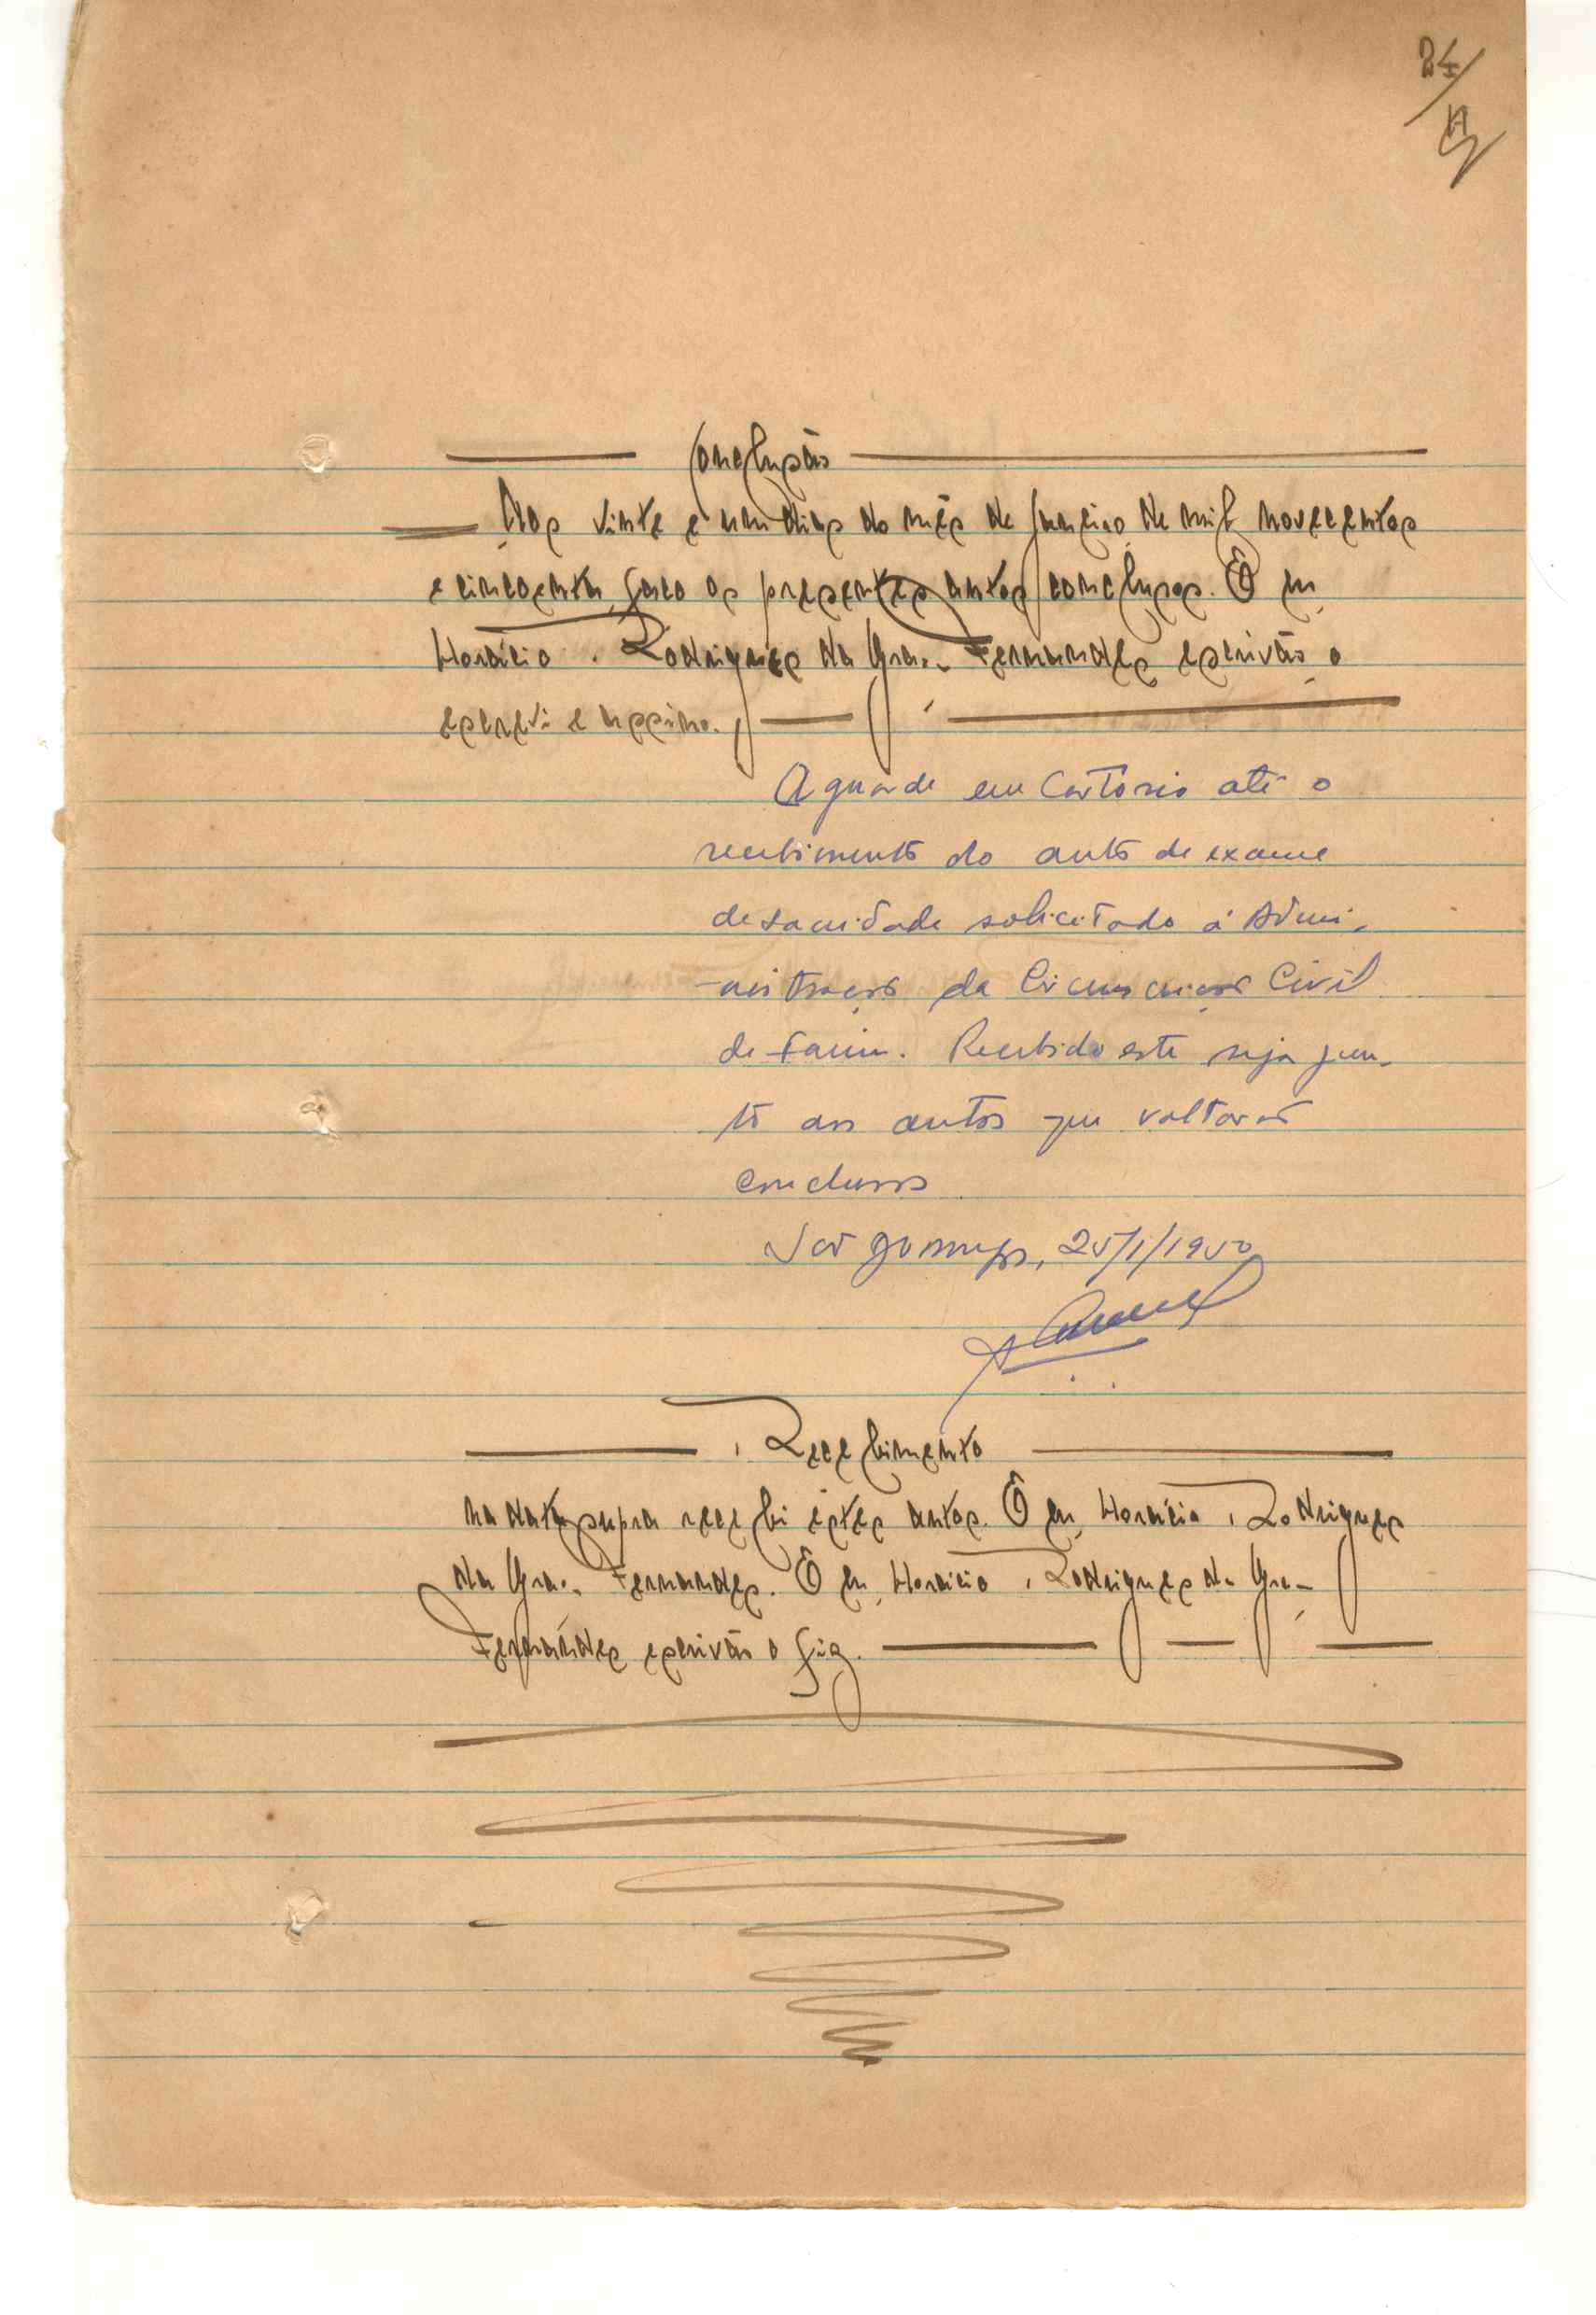 24
Conclusão
Aos vinte e um dias do mês de Janeiro de mil novecentos
e cincoenta, faço os presentes autos conclusos. E eu,
Horácio Rodrigues da Graça Fernandes escrivão, o
escrevi e assino.
Aguarde em Cartório até o
recebimento do auto de exame
de sanidade solicitado á Admi-
nistração da Circunscrição Civil
de Farim. Recebido este seja jun-
to aos autos que voltarão
conclusos
São Domingos, 25/1/1950
Recebimento
na data supra recebi êstes autos. E eu, Horácio Rodrigues
da Graça Fernandes. E eu, Horácio Rodrigues da Graça
Fernandes escrivão o fiz.